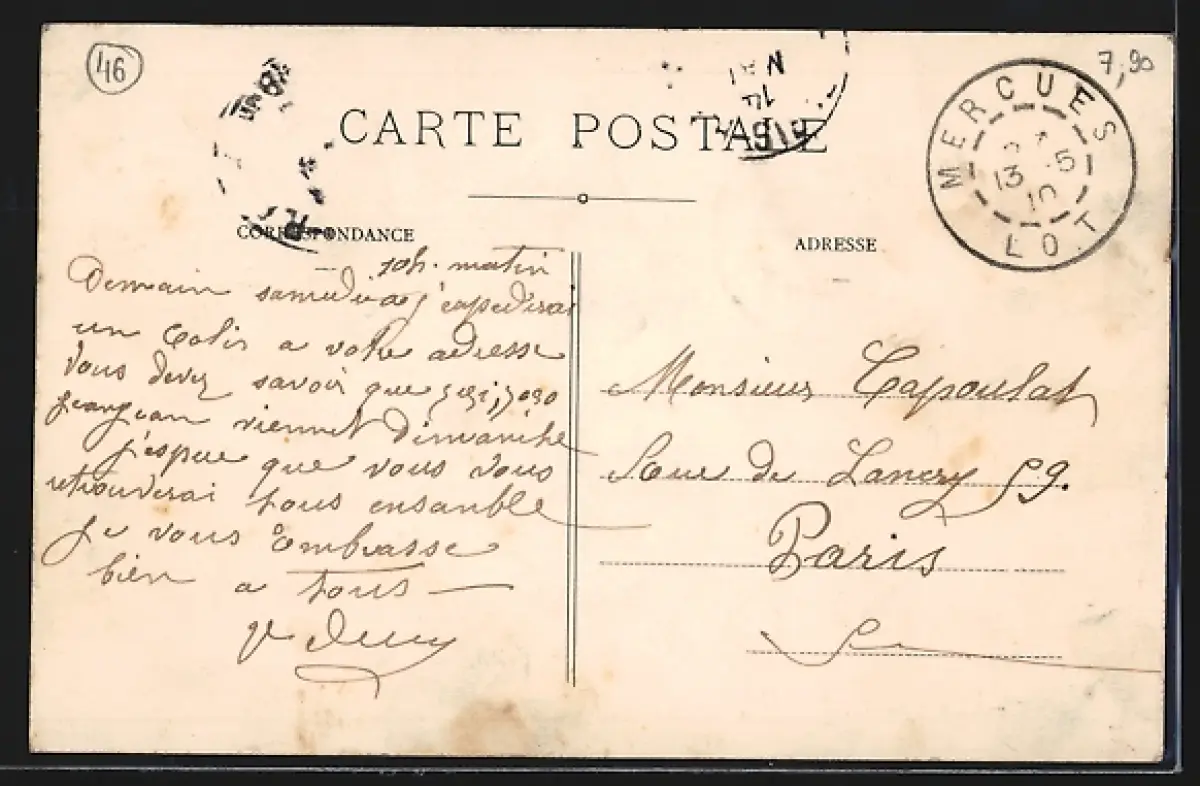 46
7,90
CARTE POSTALE
MERCUES
13 5
10
LOT
CORRESPONDANCE
ADRESSE
10h. matin
Demain samedi j'expedirai
un Colis a votre adresse
Vous devez savoir que
viennet Dimanche
j'espere que vous vous
retrouverai tous ensanble
Je vous Embrasse
bien a tous
Monsieur Capoulat
Rue de Lancry 59.
Paris